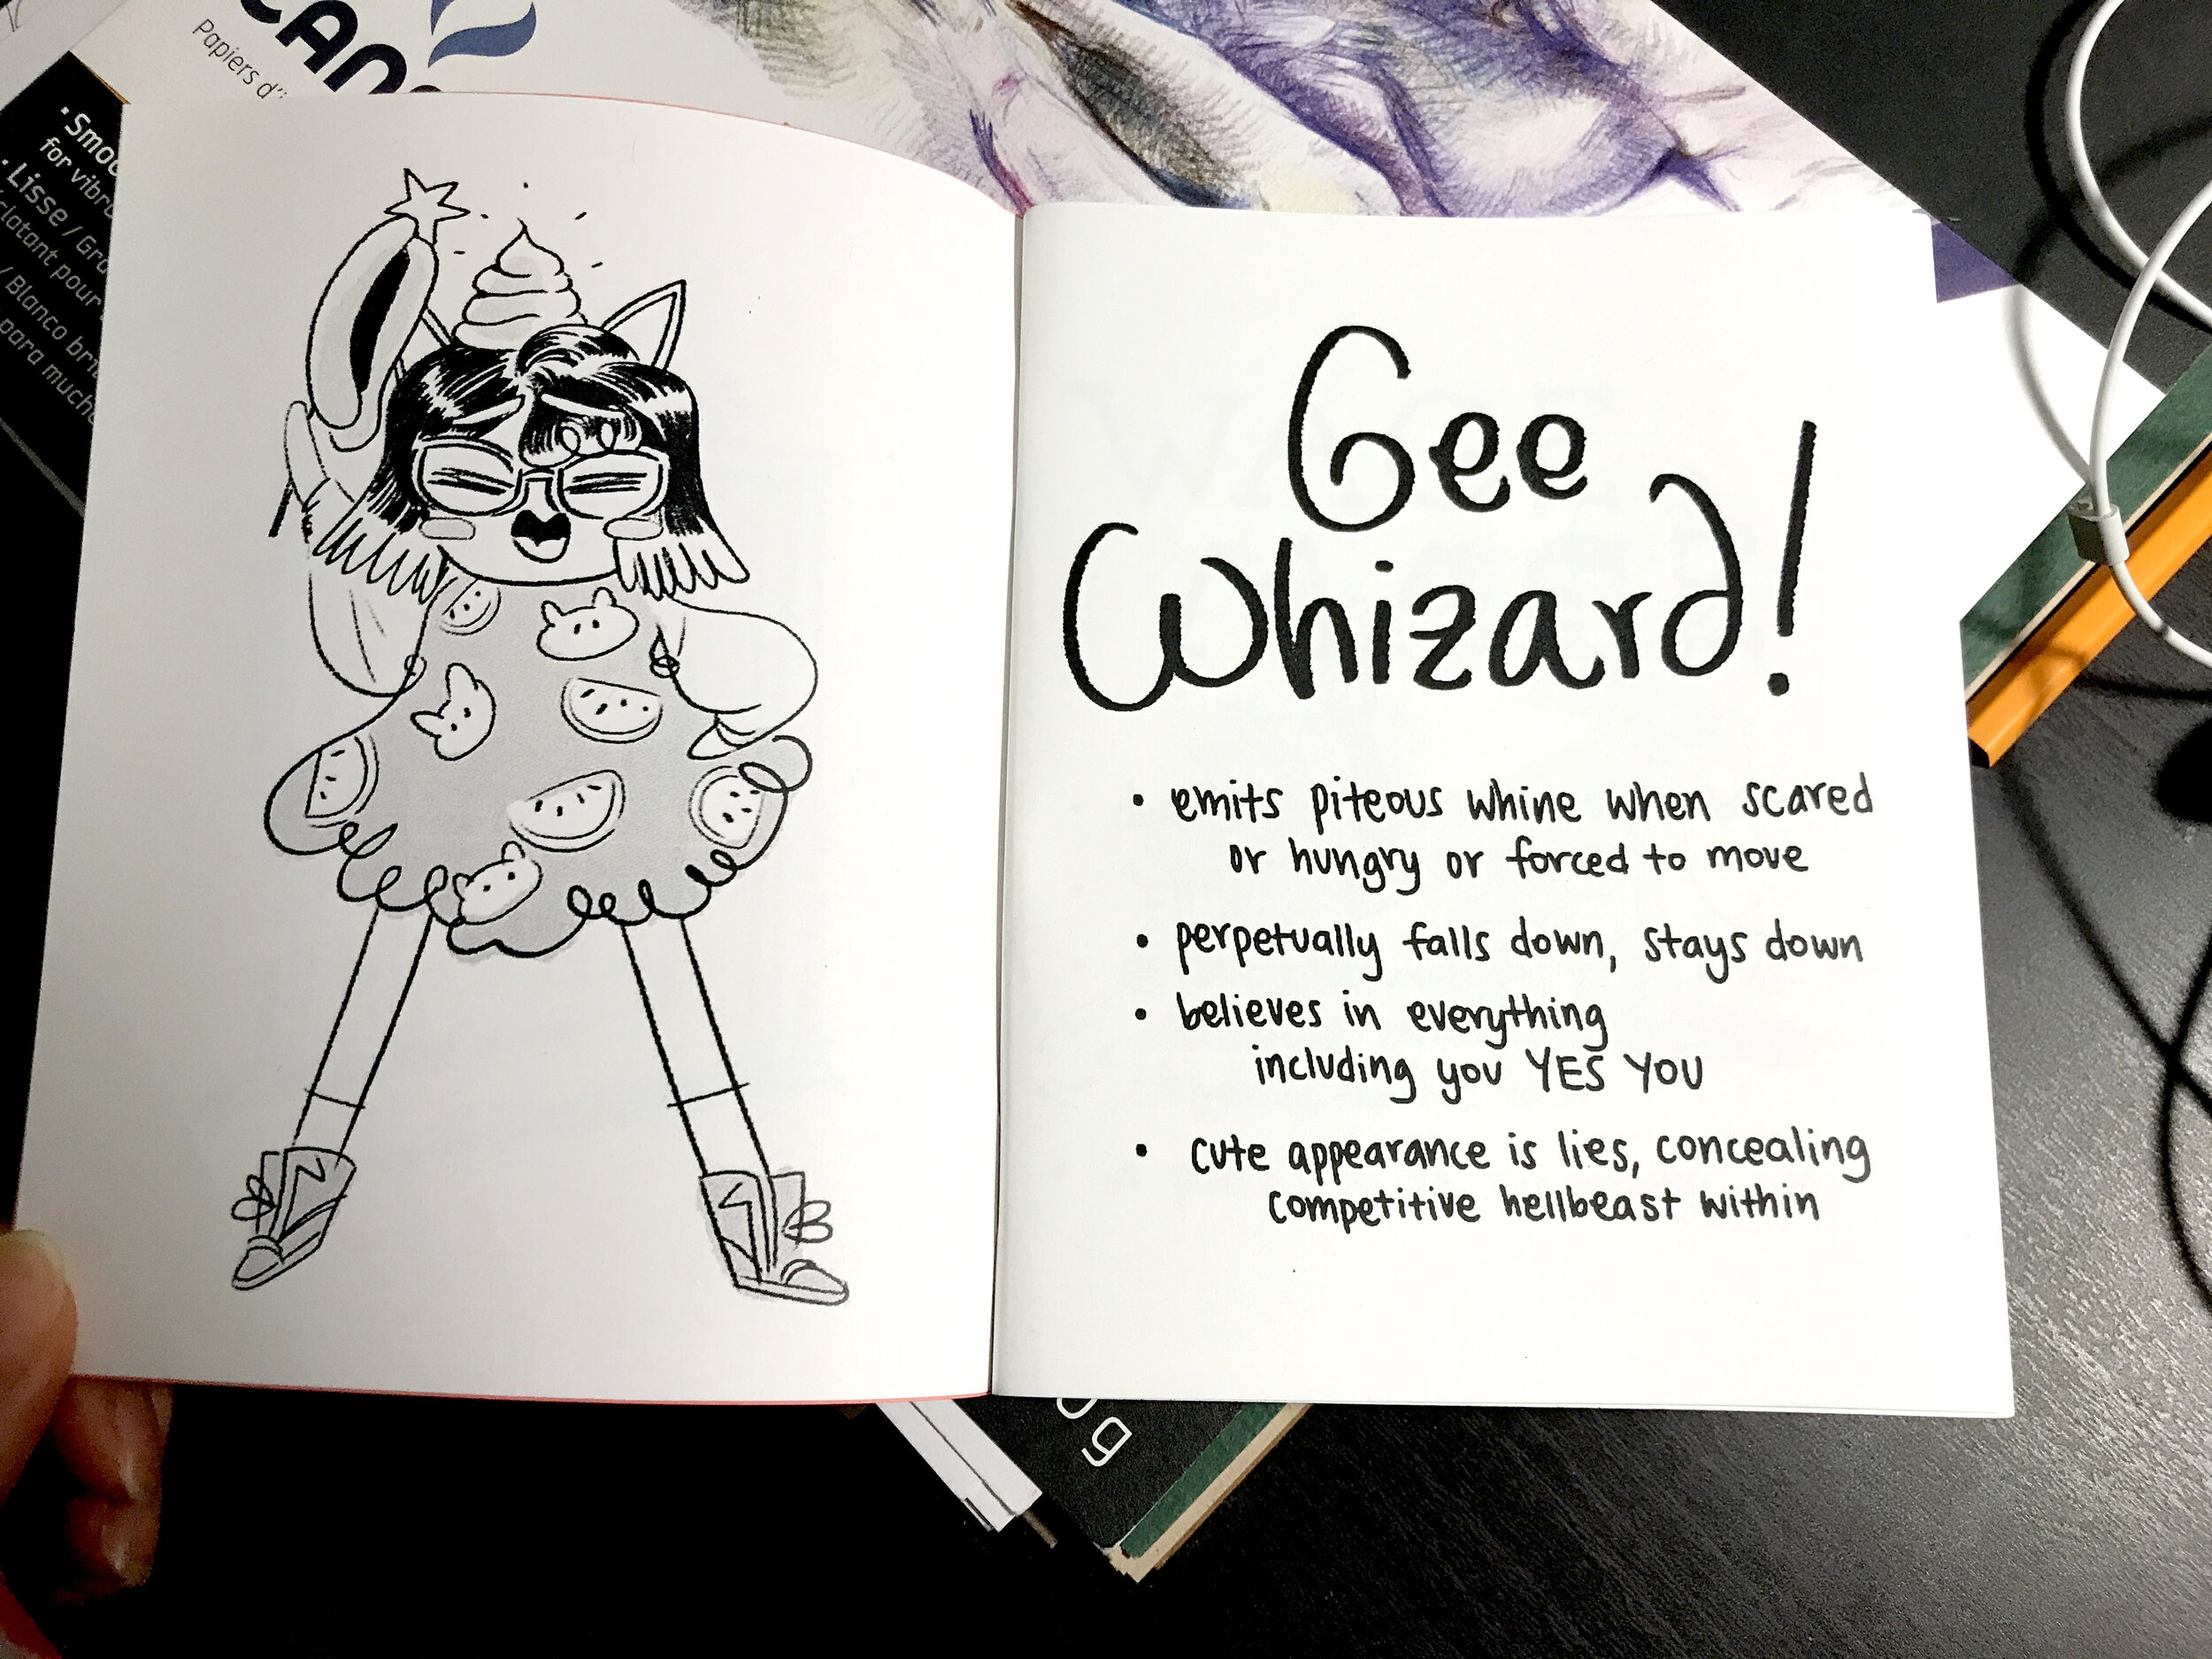 Papiers d'
• Smoo
for vibra
• Lisse / Gra
clatant pour
/ Blanco bri
para mucho
Gee
Whizard!
• emits piteous whine when scared
or hungry or forced to move
• perpetually falls down, stays down
• believes in everything
including you YES YOU
• cute appearance is lies, concealing
competitive hellbeast within
og